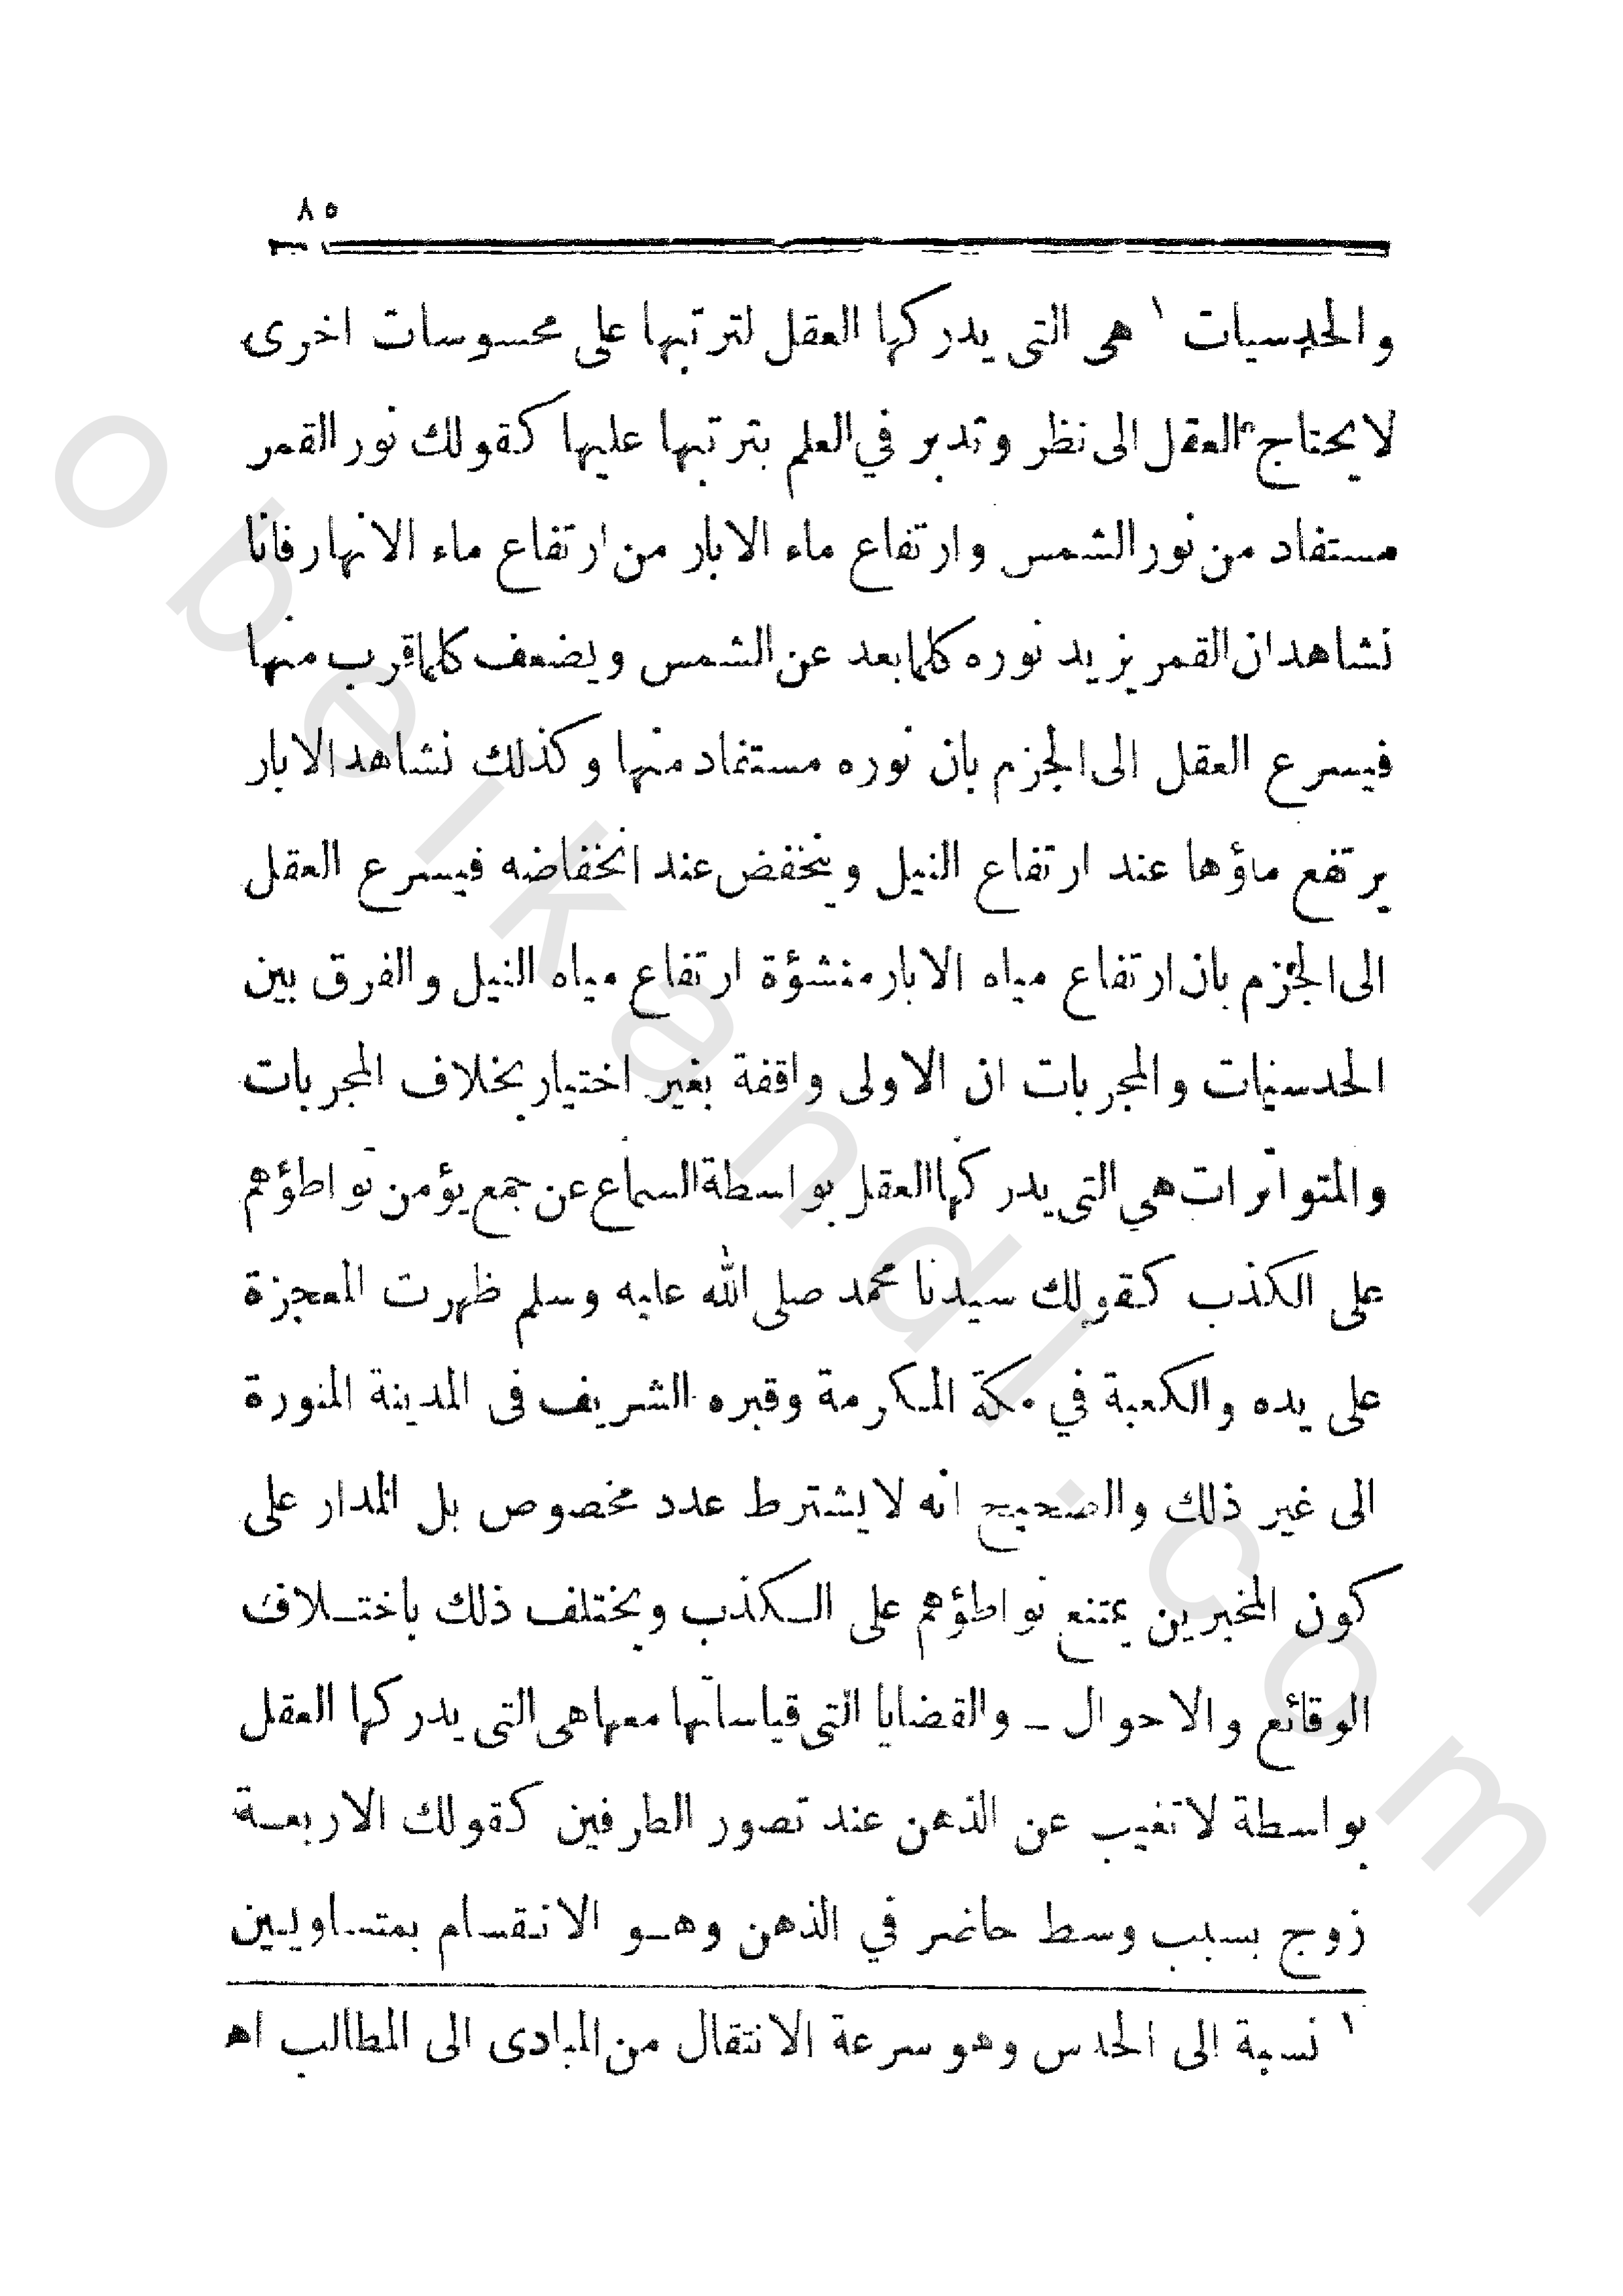 ٨٥
والحدسيات ١ هى التى يدركها العقل لترتبها على محسوسات اخرى
لا يحتاج العقل الى نظر وتدبر في العلم بترتبها عليها كقولك نور القمر
مستفاد من نور الشمس وارتفاع ماء الابار من ارتفاع ماء الانهار فانا
نشاهد ان القمر يزيد نوره كلما بعد عن الشمس ويضعف كلما قرب منها
فيسرع العقل الى الجزم بان نوره مستفاد منها وكذلك نشاهد الابار
يرتفع ماؤها عند ارتفاع النيل وينخفض عند انخفاضه فيسرع العقل
الى الجزم بان ارتفاع مياه الابار منشؤة ارتفاع مياه النيل والفرق بين
الحدسيات والمجربات ان الاولى واقفة بغير اختيار بخلاف المجربات
والمتواترات هي التى يدركها العقل بواسطة السماع عن جمع يؤمن تواطؤهم
على الكذب كقولك سيدنا محمد صلى الله عليه وسلم ظهرت المعجزة
على يده والكعبة في مكة المكرمة وقبره الشريف فى المدينة المنورة
الى غير ذلك والصحيح انه لا يشترط عدد مخصوص بل المدار على
كون المخبرين يمتنع تواطؤهم على الكذب ويختلف ذلك باختلاف
الوقائع والاحوال ـ والقضايا التى قياساتها معها هى التى يدركها العقل
بواسطة لا تغيب عن الذهن عند تصور الطرفين كقولك الاربعة
زوج بسبب وسط حاضر في الذهن وهو الانقسام بمتساويين
١ نسبة الى الحدس وهو سرعة الانتقال من المبادى الى المطالب اه
obeikandl.com